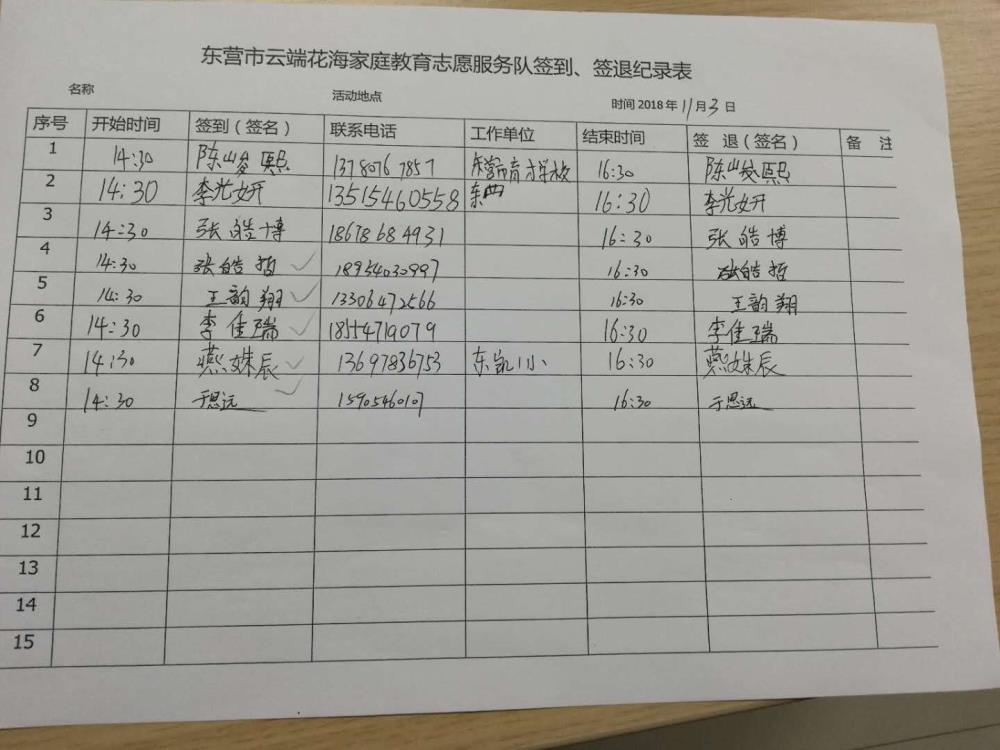 东营市云端花海家庭教育志愿服务队签到、签退纪录表
名称 活动地点 时间 2018 年 11 月 3 日
序号 开始时间 签到（签名） 联系电话 工作单位 结束时间 签 退（签名） 备 注
1 14:30 陈峻熙 13780767857 东营市育才学校 16:30 陈峻熙
2 14:30 李光妍 13515460558 东四 16:30 李光妍
3 14:30 张皓博 18678684931 16:30 张皓博
4 14:30 张皓哲 18954030997 16:30 张皓哲
5 14:30 王韵翔 13306472566 16:30 王韵翔
6 14:30 李佳瑞 18554719079 16:30 李佳瑞
7 14:30 燕姝辰 13697836753 东凯小 16:30 燕姝辰
8 14:30 于思远 15905460107 16:30 于思远
9
10
11
12
13
14
15